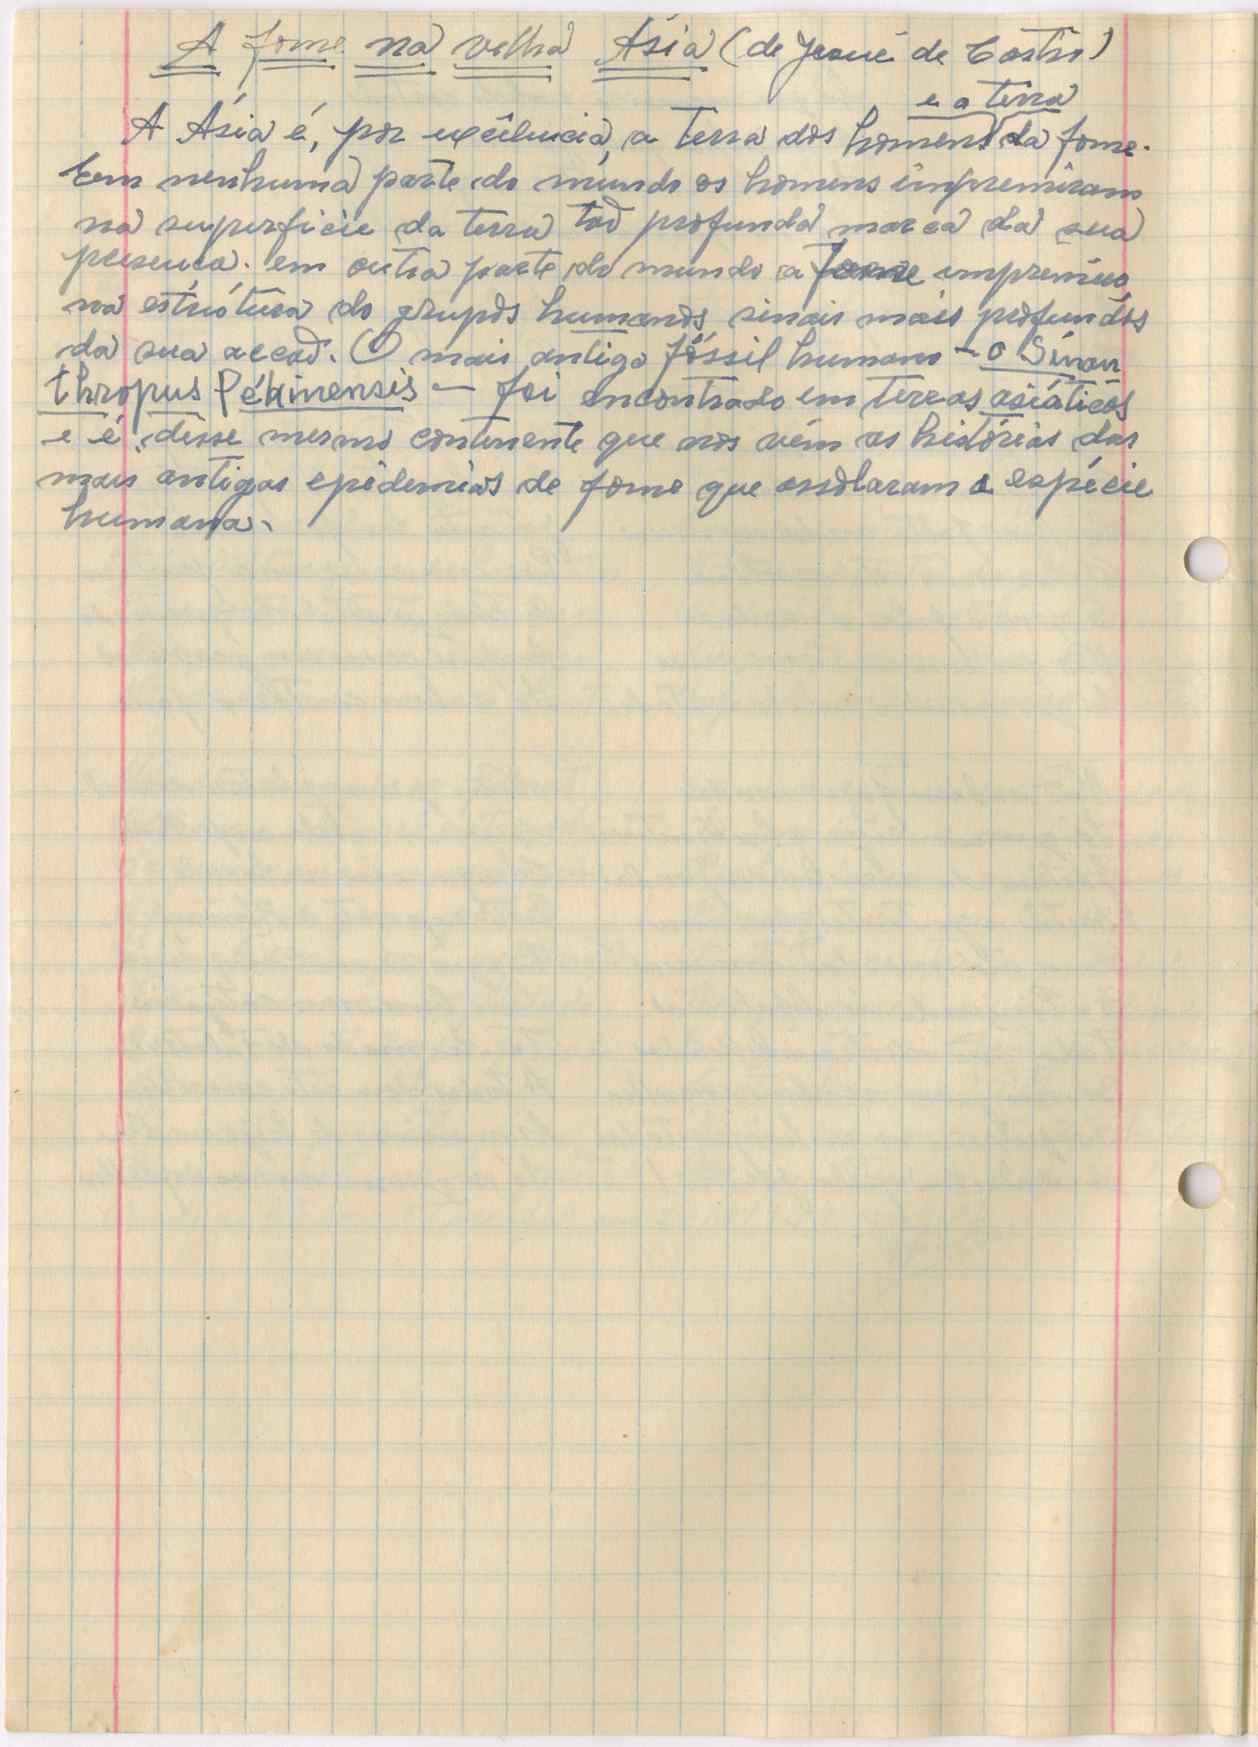 A fome na velha Ásia (de Josué de Castro)
e a terra
A Ásia é, por excelência, a terra dos homens da fome.
Em nenhuma parte do mundo os homens impremiram
na superficie da terra tão profunda marca da sua
presença. em outra parte do mundo a fome impremiu
na estrutura do grupos humanos sinais mais profundos
da sua accão. O mais antigo fóssil humano - o Sinan
thropus Pékinensis - foi encontrado em terras asiáticas
e é desse mesmo continente que nos vêm as histórias das
mais antigas epidemias de fome que assolaram a espécie
humana.